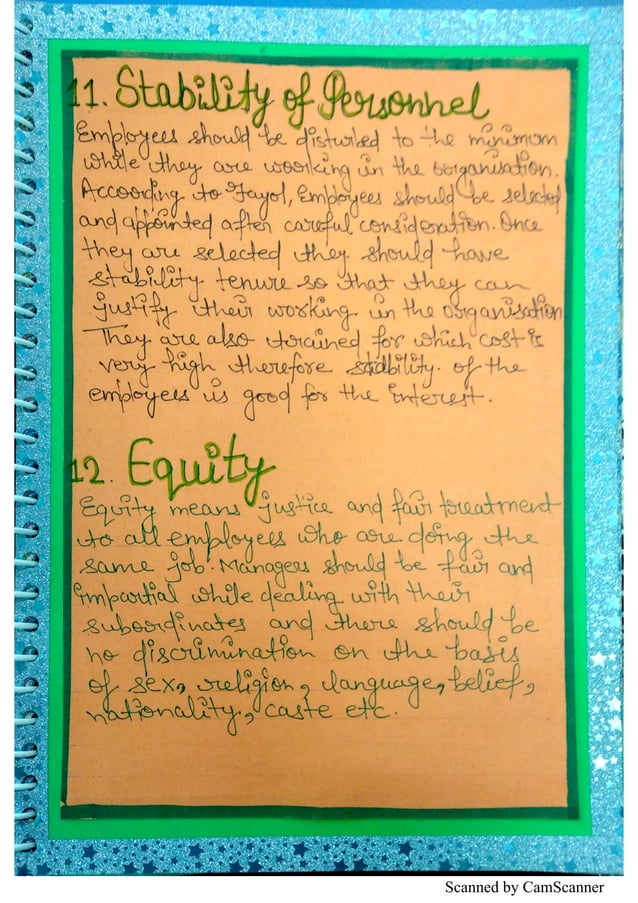 11. Stability of Personnel
Employees should be disturbed to the minimum
while they are working in the organisation.
According to Fayol, Employees should be selected
and appointed after careful consideration. Once
they are selected they should have
stability tenure so that they can
justify their working in the organisation
They are also trained for which cost is
very high therefore stability of the
employees is good for the interest.
12. Equity
Equity means justice and fair treatment
to all employees who are doing the
same job. Managers should be fair and
impartial while dealing with their
subordinates and there should be
no discrimination on the basis
of sex, religion, language, belief,
nationality, caste etc.
Scanned by CamScanner